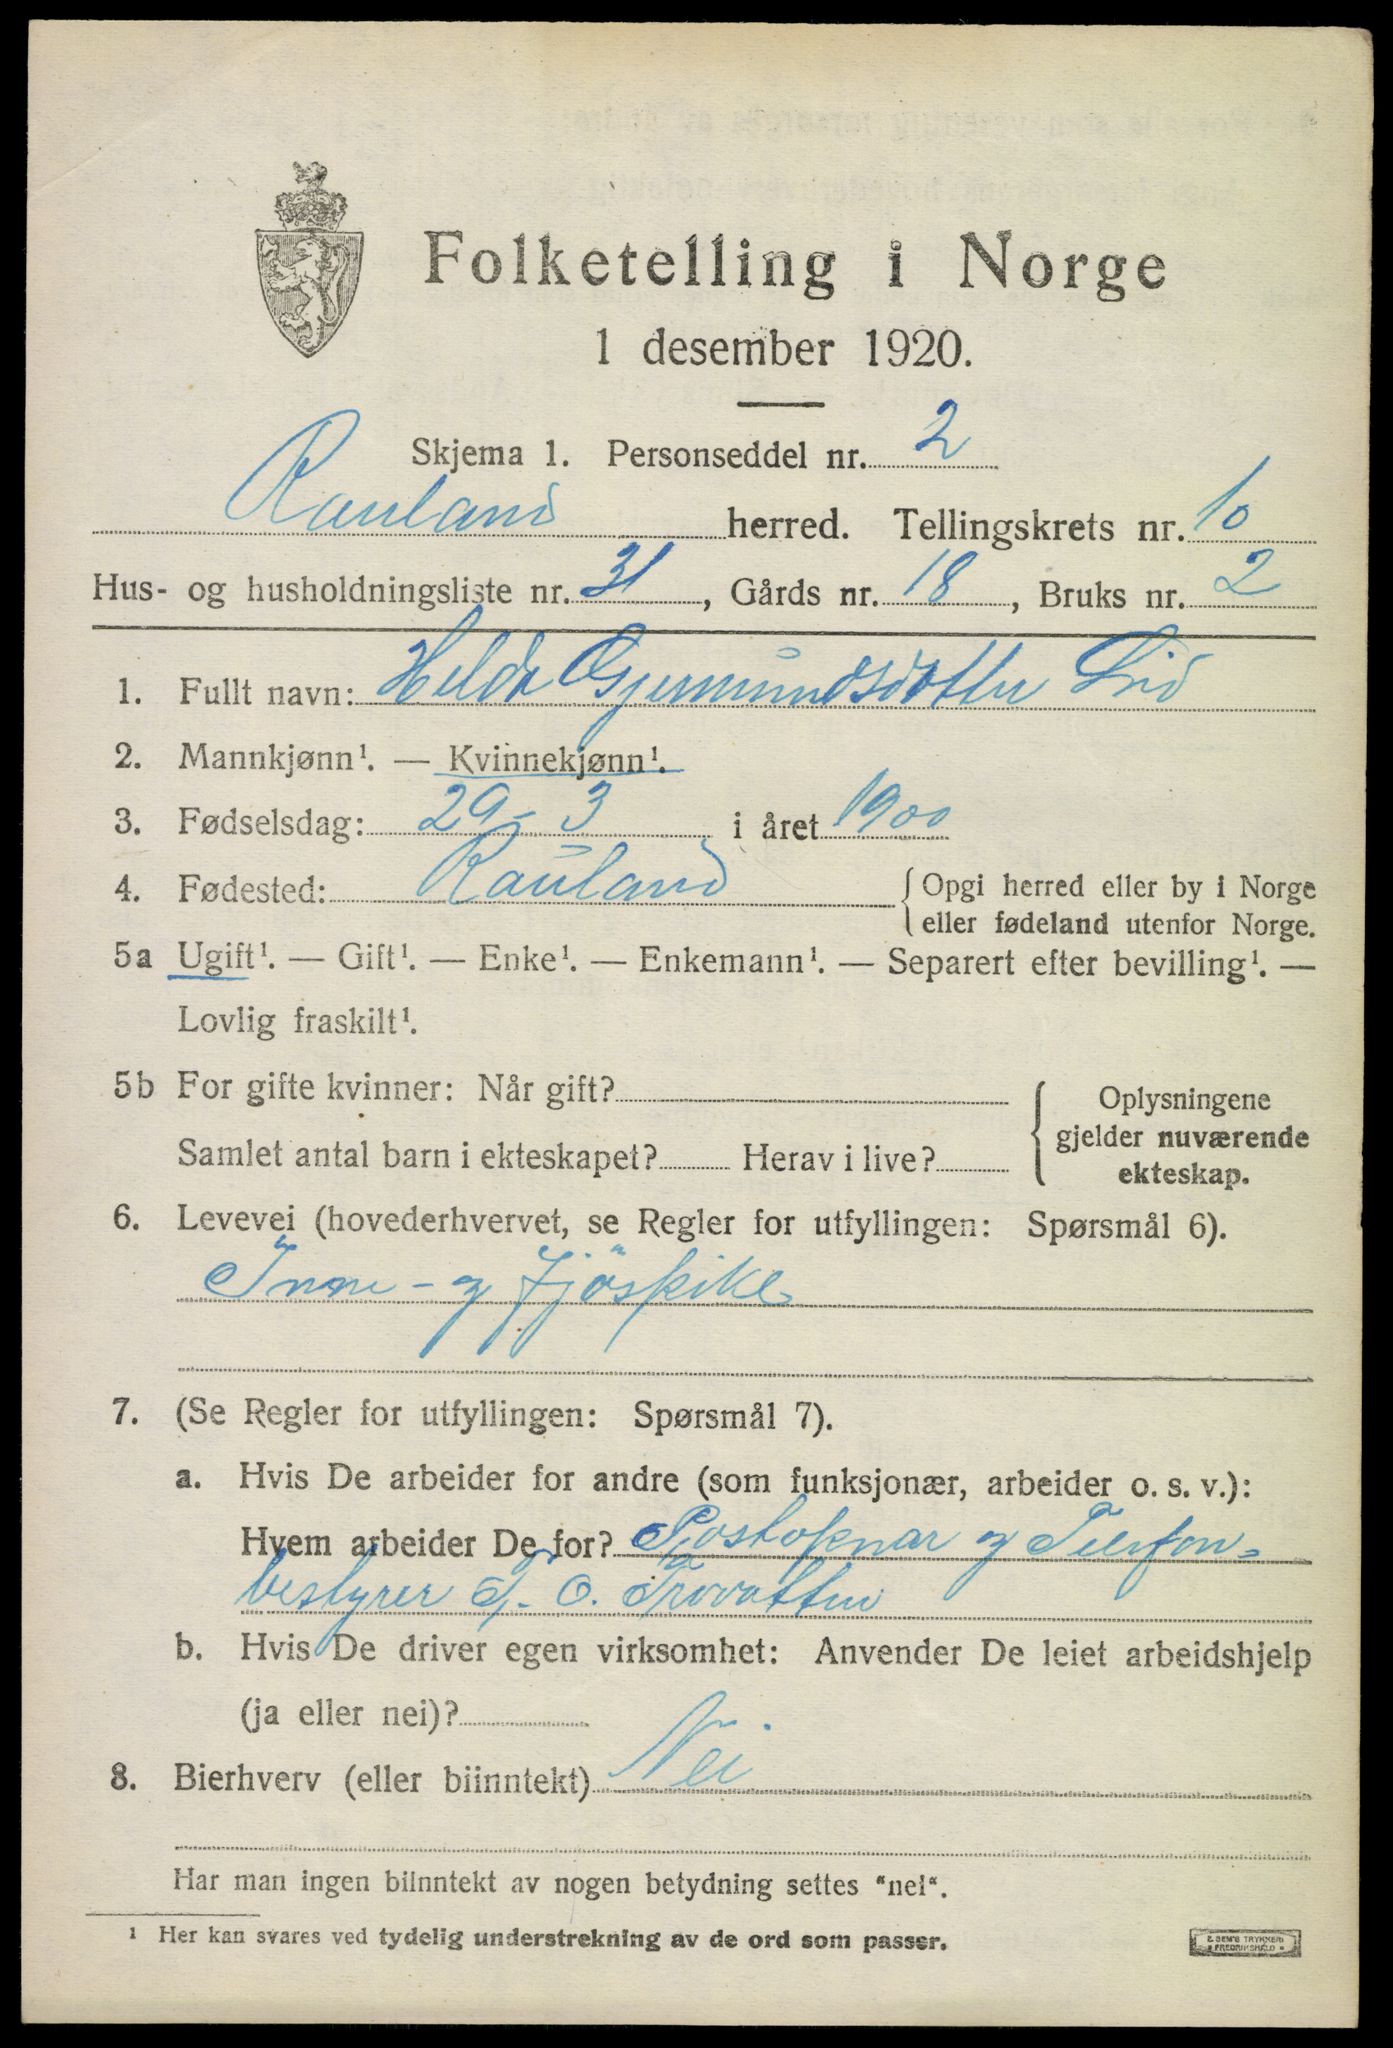 Folketelling i Norge
1 desember 1920.
Skjema 1. Personseddel nr. 2
Rauland herred. Tellingskrets nr. 10
Hus- og husholdningsliste nr. 31, Gårds nr. 18, Bruks nr. 2
1. Fullt navn: Gjermundsdotter Lid
2. Mannkjønn¹. — Kvinnekjønn¹.
3. Fødselsdag: 29-3 i året 1900
4. Fødested: Rauland { Opgi herred eller by i Norge
eller fødeland utenfor Norge.
5a Ugift¹. — Gift¹. — Enke¹. — Enkemann¹. — Separert efter bevilling¹. —
Lovlig fraskilt¹.
5b For gifte kvinner: Når gift?
Samlet antal barn i ekteskapet? Herav i live?
{ Oplysningene
gjelder nuværende
ekteskap.
6. Levevei (hovederhvervet, se Regler for utfyllingen: Spørsmål 6).
Inne- og fjöspike
7. (Se Regler for utfyllingen: Spørsmål 7).
a. Hvis De arbeider for andre (som funksjonær, arbeider o. s. v.):
Hvem arbeider De for? Postopnar og Telefon=
bestyrer T. O.
b. Hvis De driver egen virksomhet: Anvender De leiet arbeidshjelp
(ja eller nei)?
8. Bierhverv (eller biinntekt) Nei
Har man ingen biinntekt av nogen betydning settes "nei".
¹ Her kan svares ved tydelig understrekning av de ord som passer.
E SEM'S TRYKKERI
FREDRIKSHALD